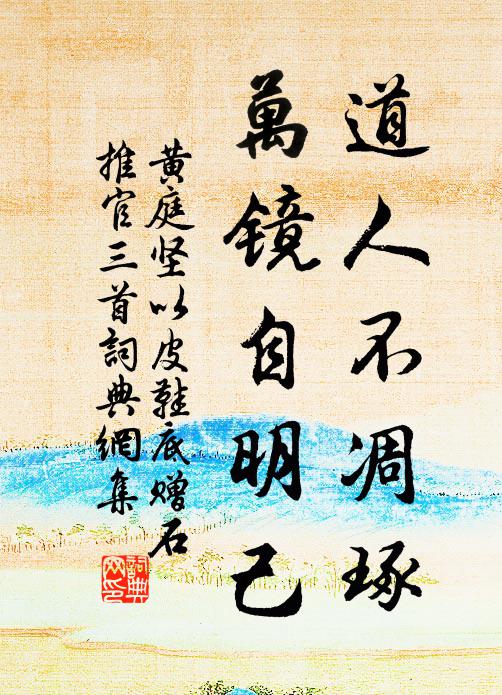 道人不凋琢
萬镜自明己
黄庭坚以皮鞋底赠石
推官三首詞典網集
詞典网印